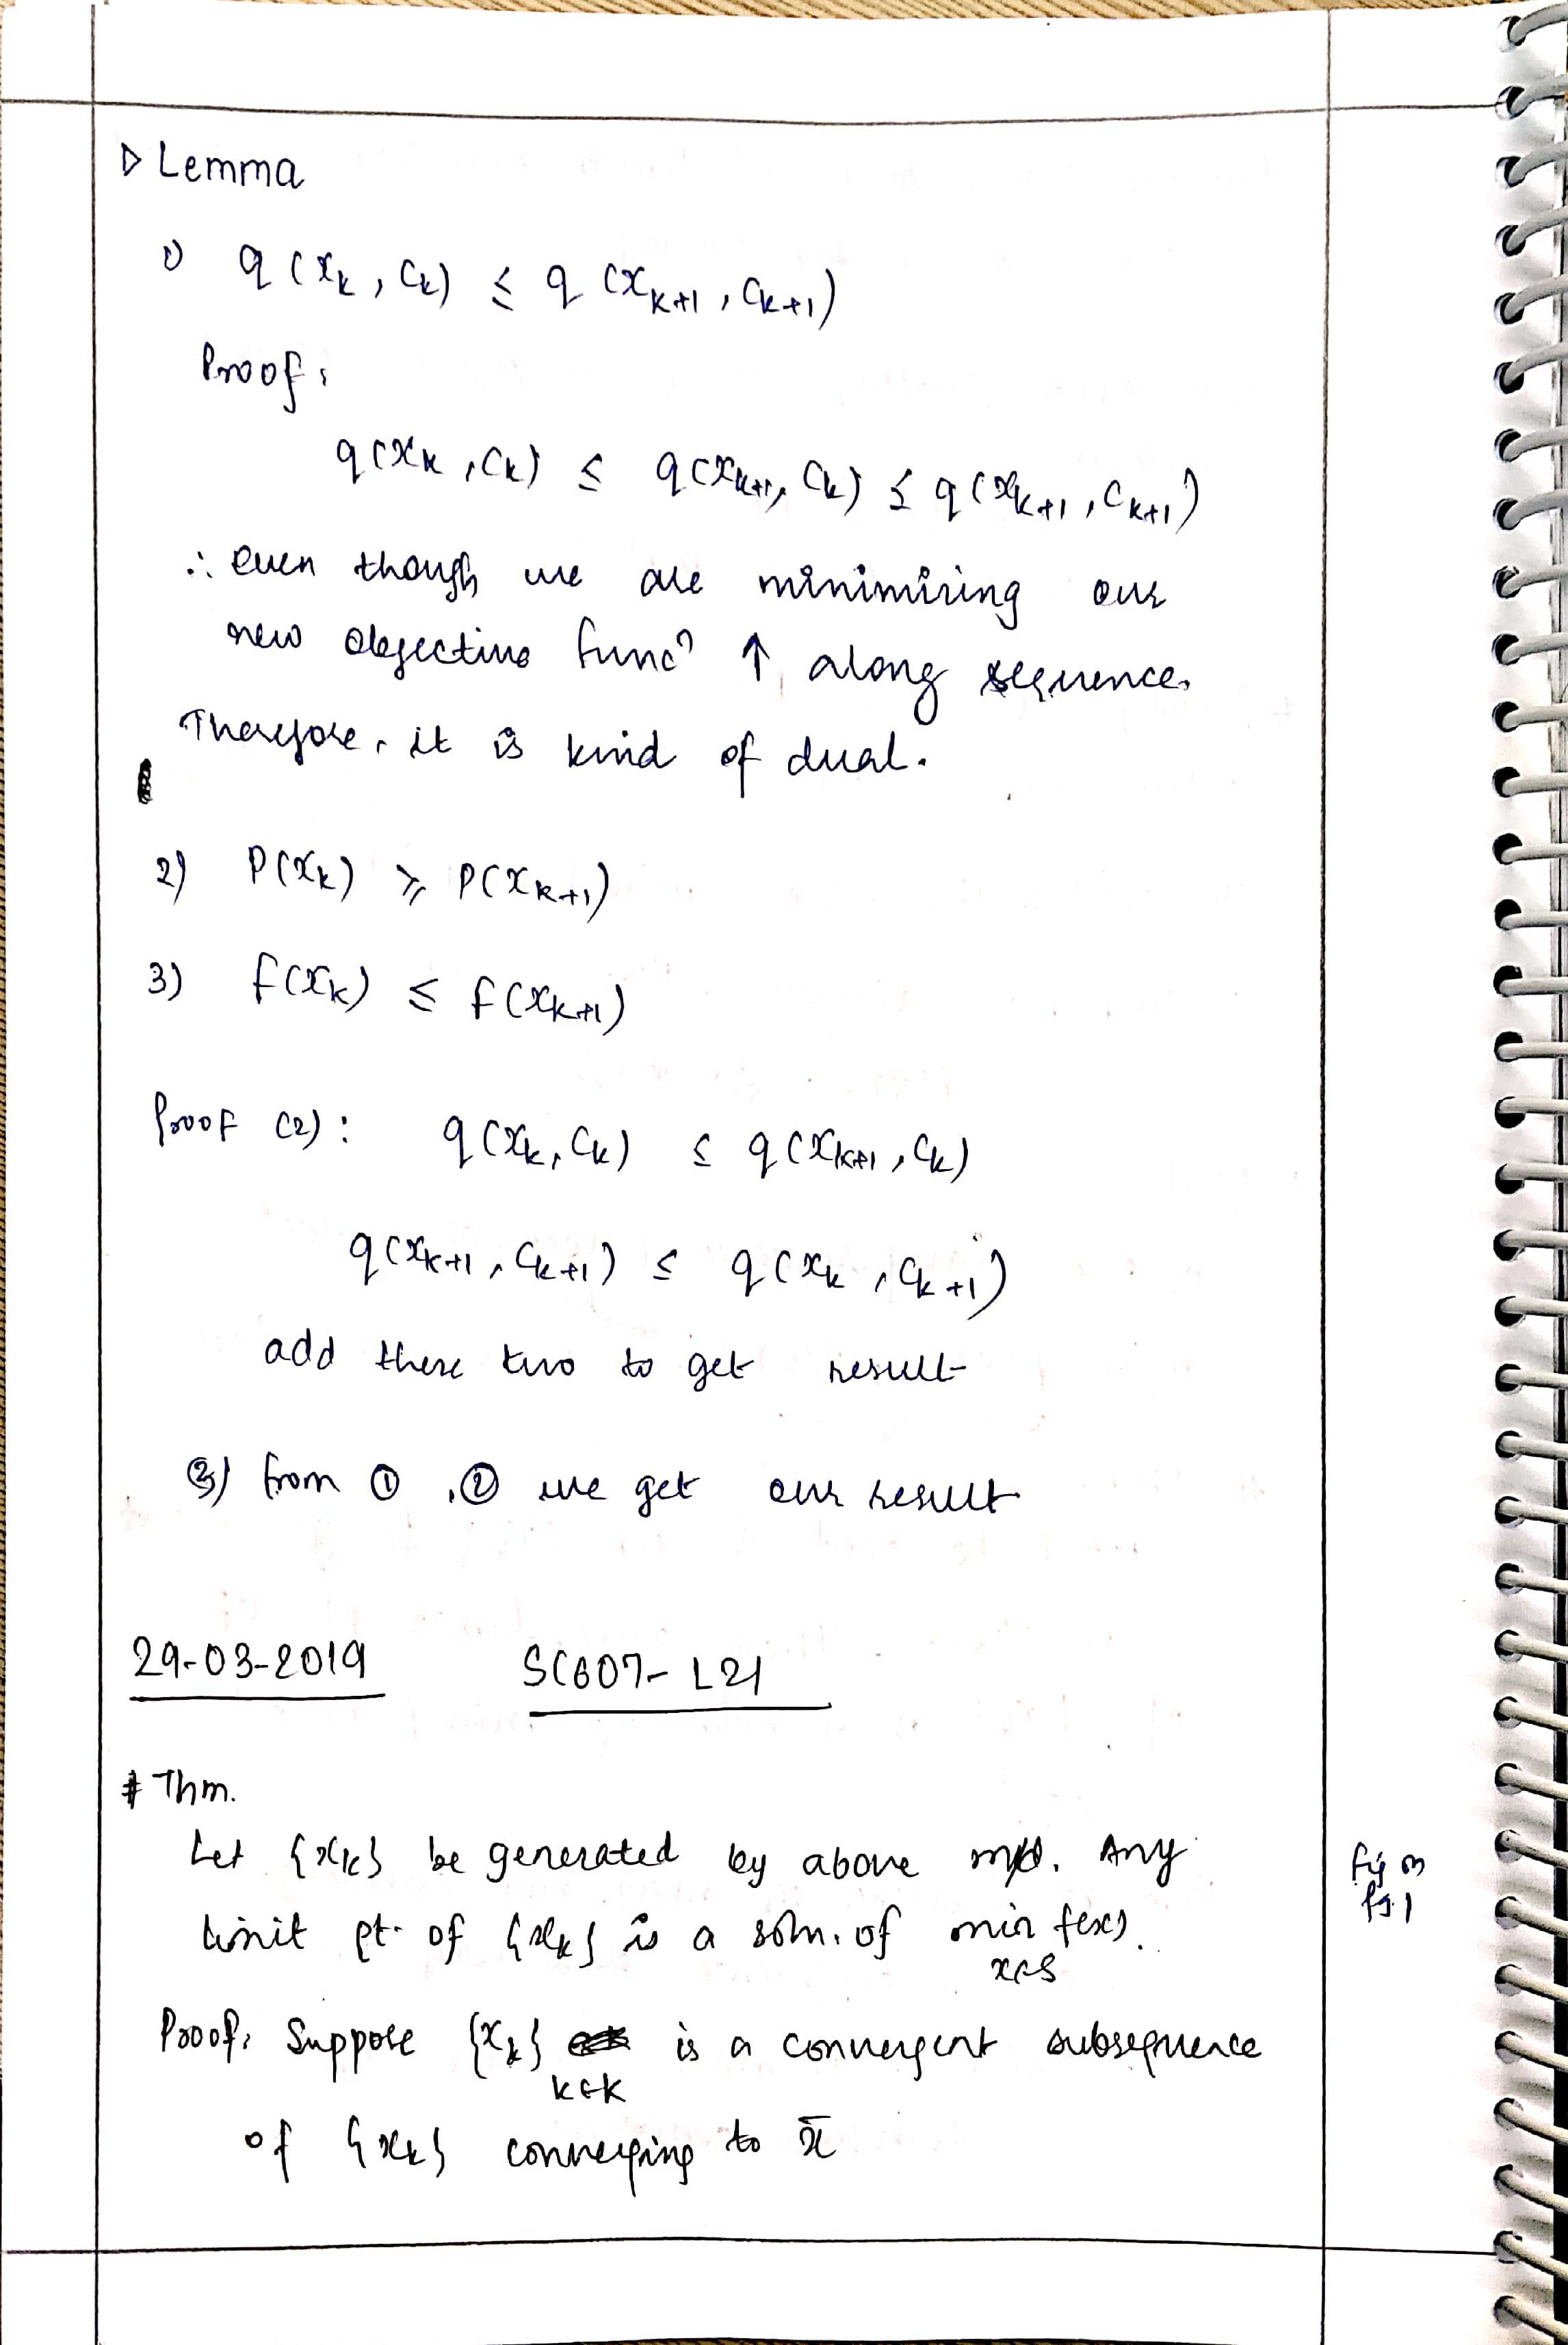 ▷ Lemma
1) q(x_k, c_k) ≤ q(x_{k+1}, c_{k+1})
Proof:
q(x_k, c_k) ≤ q(x_{k+1}, c_k) ≤ q(x_{k+1}, c_{k+1})
∴ even though we are minimizing our
new objective funcⁿ ↑ along sequence.
Therefore, it is kind of dual.
2) P(x_k) ≥ P(x_{k+1})
3) f(x_k) ≤ f(x_{k+1})
Proof (2): q(x_k, c_k) ≤ q(x_{k+1}, c_k)
q(x_{k+1}, c_{k+1}) ≤ q(x_k, c_{k+1})
add these two to get result
3) from ① , ② we get our result
29-03-2019 SC607- L21
# Thm.
Let {x_k} be generated by above Any
limit pt. of {x_k} is a soln. of min f(x).
x∈S
fig on
pg.1
Proof: Suppose {x_k} is a convergent subsequence
k∈K
of {x_k} converging to x̄